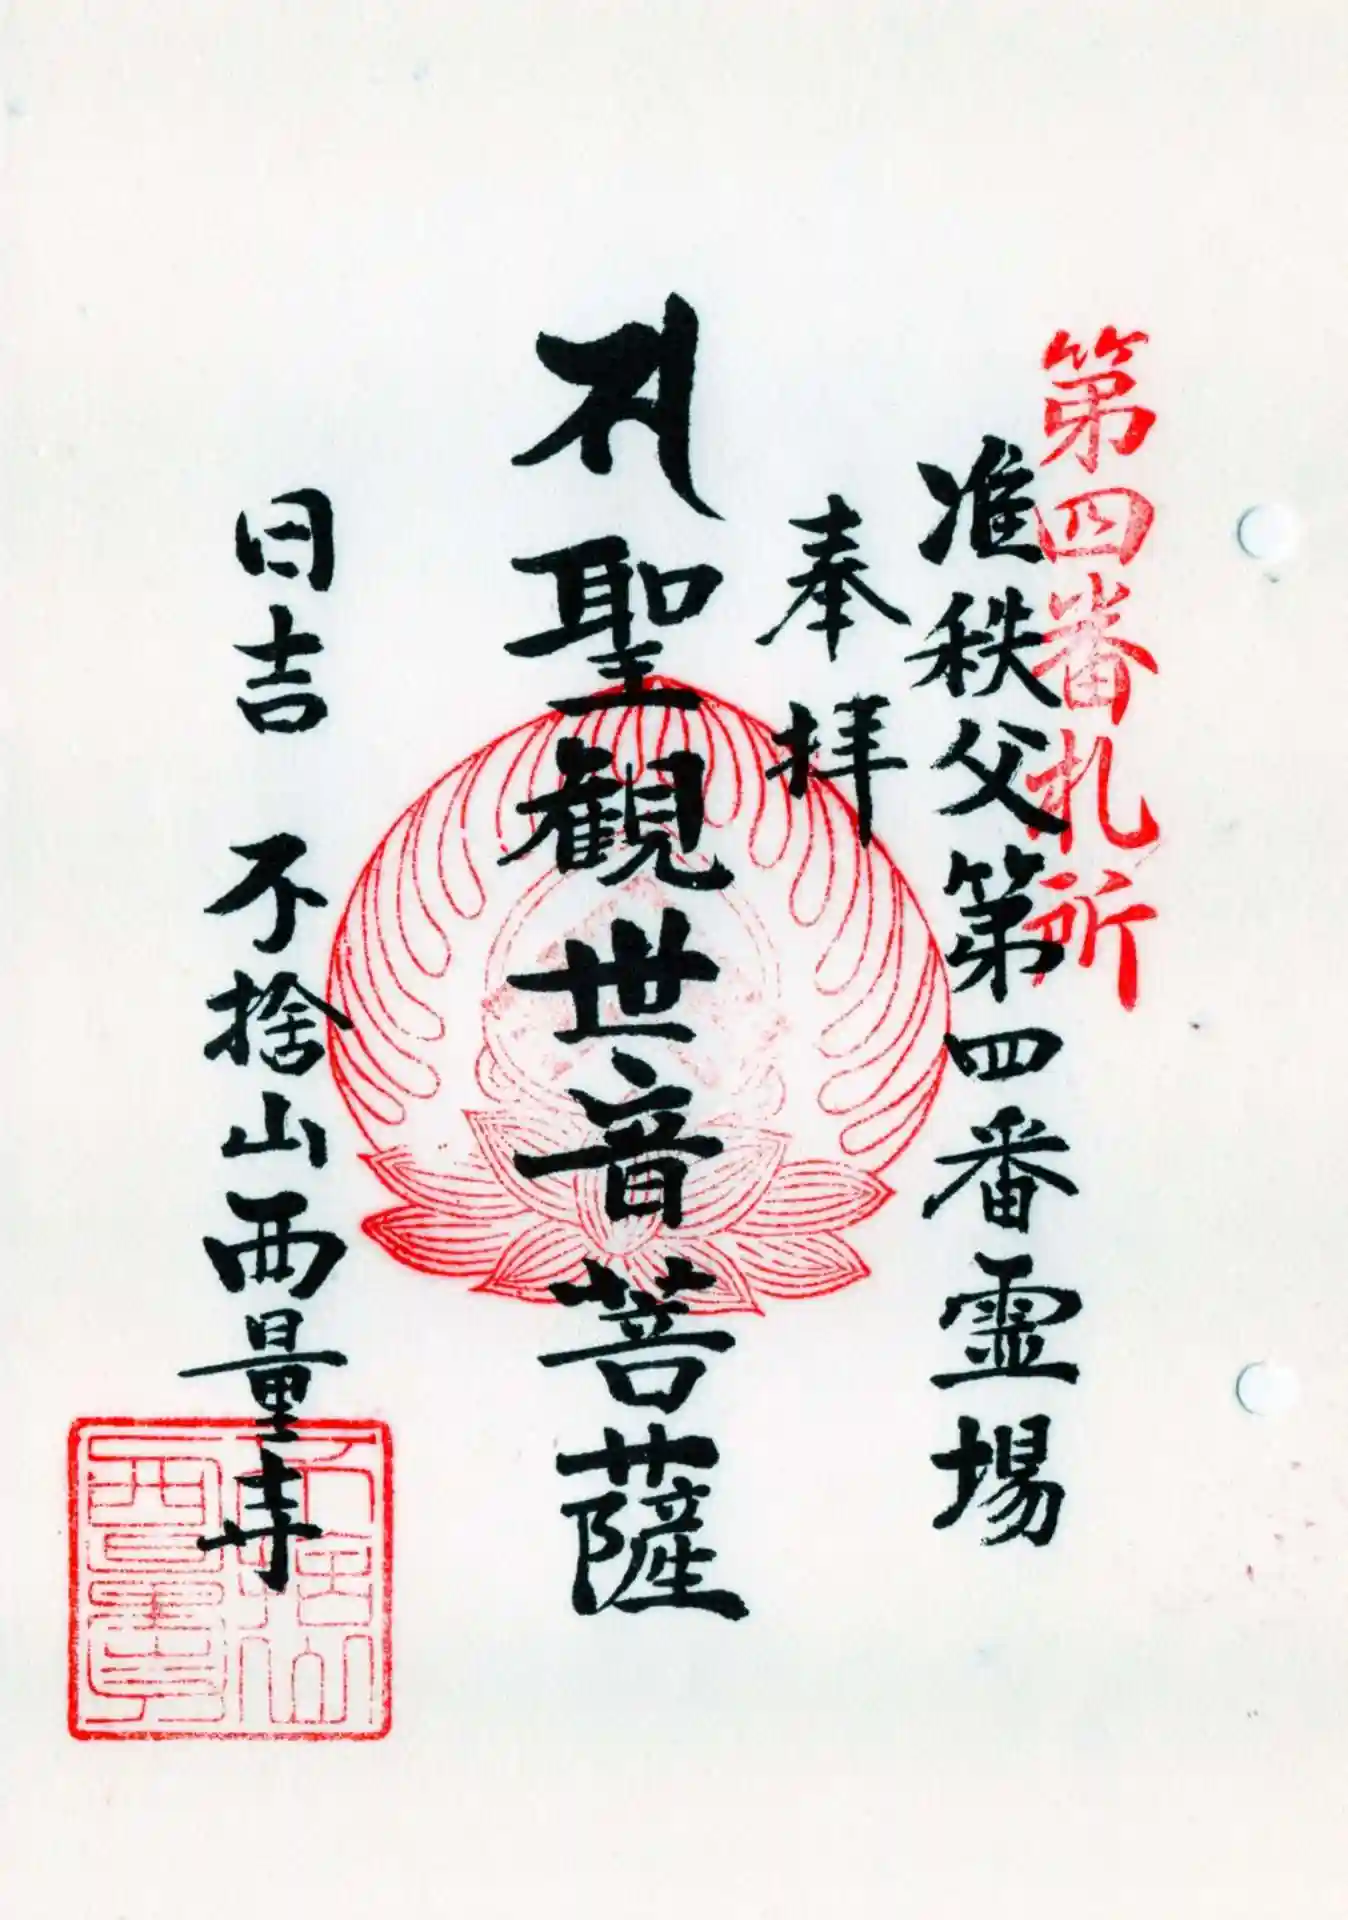 第四番札所
准秩父第四番霊場
奉拝
聖観世音菩薩
日吉 不捨山西量寺
不捨山
西量寺